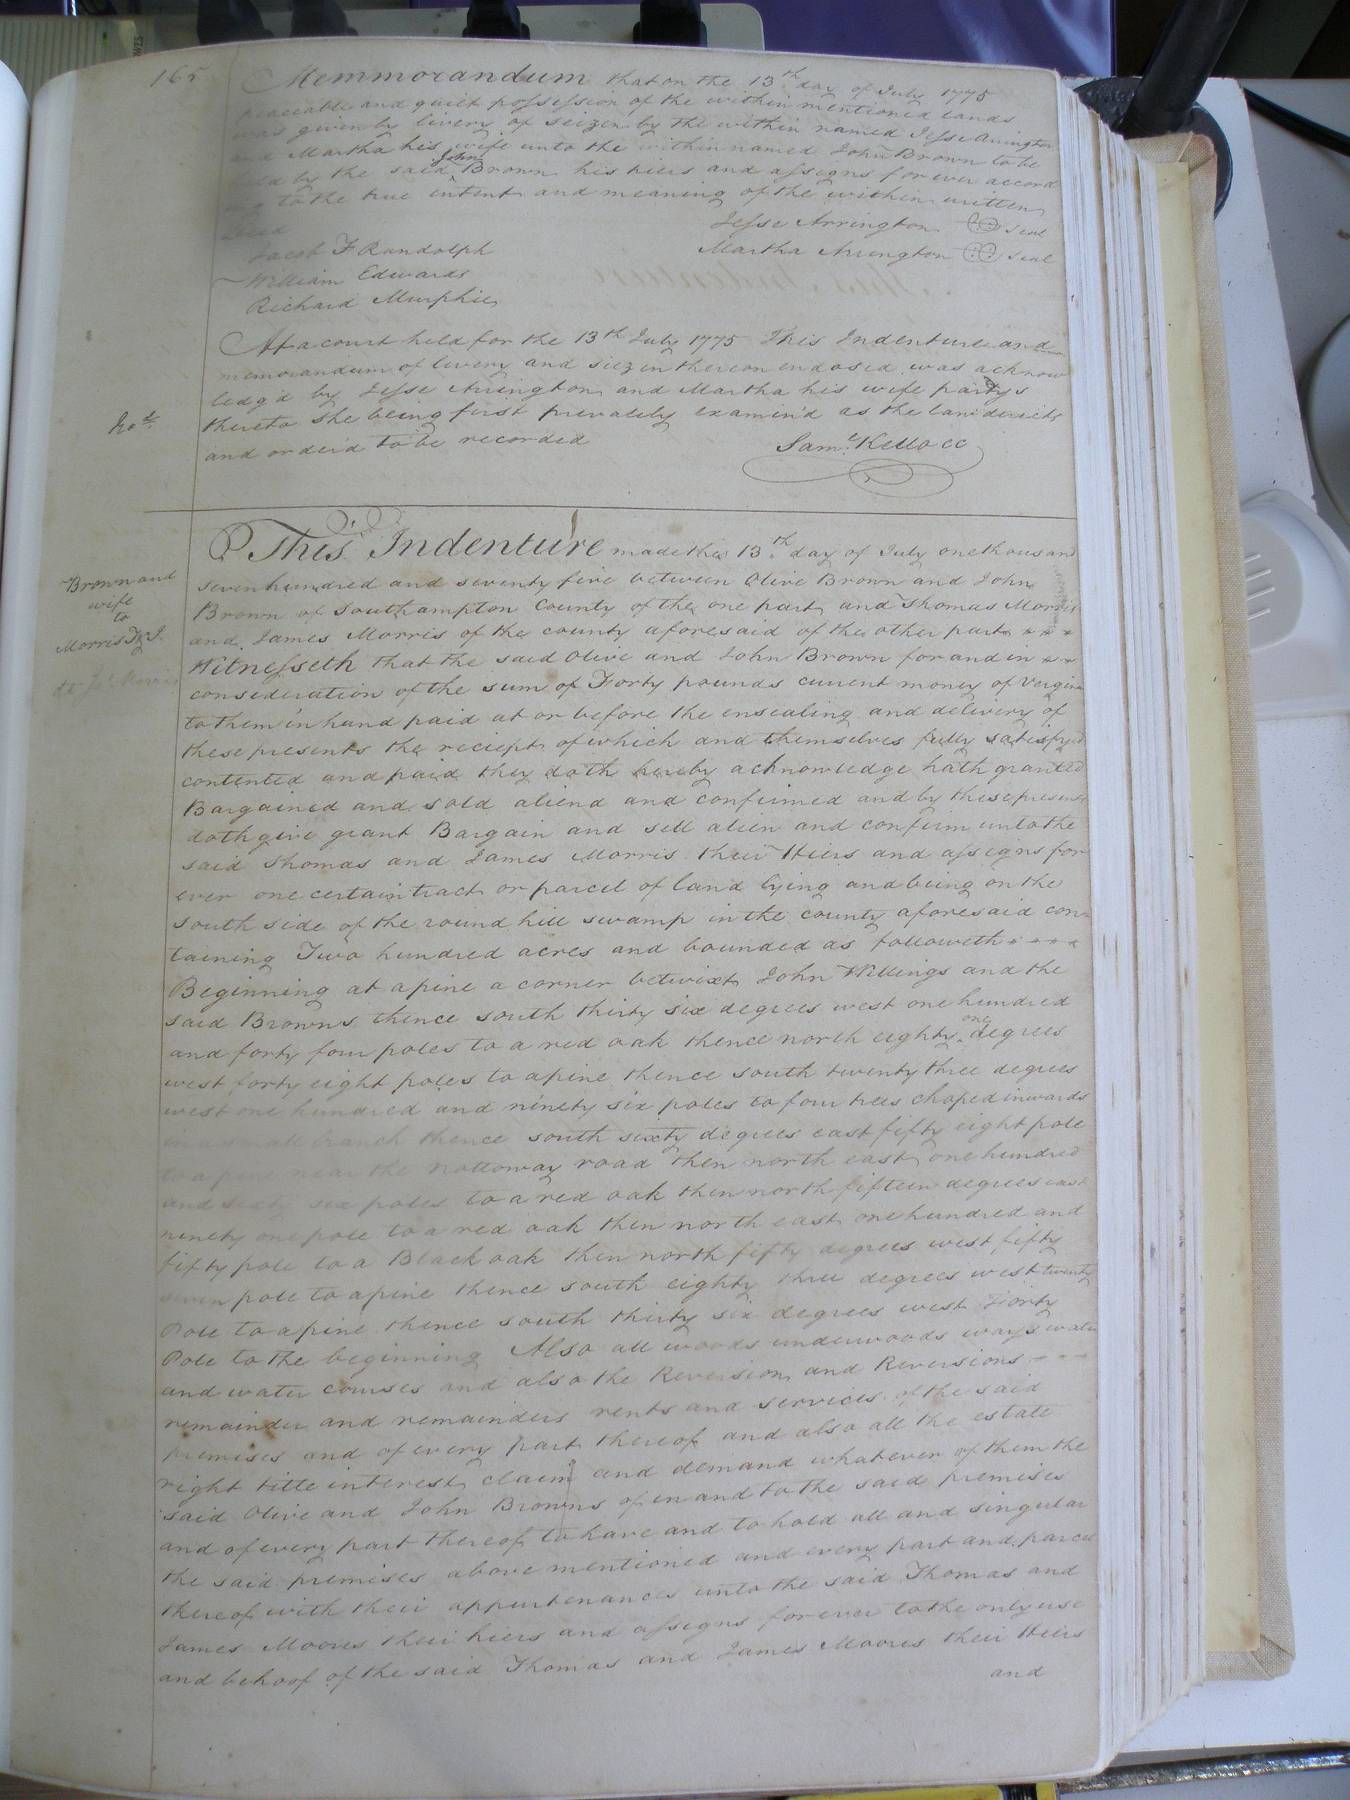 165
Memmorandum that on the 13th day of July 1775
peaceable and quiet possession of the within mentioned lands
was given by livery of seizen by the within named Jesse Arrington
and Martha his wife unto the within named John Brown to be
by the said John Brown his hiers and assigns for ever accord
to the true intent and meaning of the within written
Deed
Jesse Arrington Seal
Jacob F Randolph
Martha Arrington Seal
William Edwards
Richard Murphie
At a court held for the 13th July 1775 This Indenture and
memorandum of livery and seizen thereon endosed was acknow
ledg'd by Jesse Arrington and Martha his wife partys
thereto she being first privately examin'd as the law directs
and order'd to be recorded
Saml. Kello CC
This Indenture made this 13th day of July one thousand
seven hundred and seventy five between Olive Brown and John
Brown and
wife
to
Morris T & J.
Brown of Southampton County of the one part and Thomas Morris
and James Morris of the county aforesaid of the other part
Witnesseth that the said Olive and John Brown for and in
consideration of the sum of Forty pounds current money of Virginia
to them in hand paid at or before the ensealing and delivery of
these presents the reciept of which and themselves fully satisfyed
contented and paid they doth hereby acknowledge hath granted
Bargained and sold aliend and confirmed and by these presents
doth give grant Bargain and sell alien and confirm unto the
said Thomas and James Morris their Hiers and assigns for
ever one certain tract or parcel of land lying and being on the
south side of the round hill swamp in the county aforesaid con
taining Two hundred acres and bounded as followeth
Beginning at a pine a corner betwixt John Willings and the
said Browns thence south thirty six degrees west one hundred
and forty four poles to a red oak thence north eighty one degrees
west forty eight poles to a pine thence south twenty three degrees
west one hundred and ninety six poles to four trees choped inwards
in a small branch thence south sixty degrees east fifty eight pole
to a pine near the Nottoway road then north east one hundred
and sixty six poles to a red oak then north fifteen degrees east
ninety one pole to a red oak then north east one hundred and
fifty pole to a Black oak then north fifty degrees west fifty
seven pole to a pine thence south eighty three degrees west twenty
Pole to a pine thence south thirty six degrees west Fiorty
Pole to the beginning Also all woods underwoods ways water
and water courses and also the Reversion and Reversions
remainder and remainders rents and services of the said
premises and of every part thereof and also all the estate
right title interest claim and demand whatever of them the
said Olive and John Browns of in and to the said premises
and of every part thereof to have and to hold all and singular
the said premises above mentioned and every part and parcel
thereof with their appurtenances unto the said Thomas and
James Moores their hiers and assigns forever to the only use
and behoof of the said Thomas and James Moores their Hiers
and